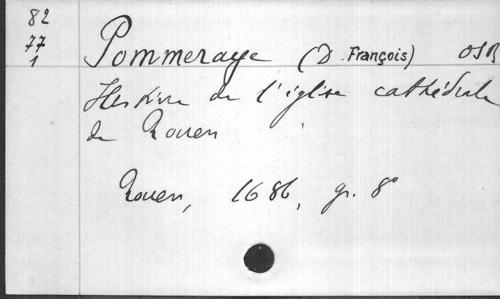 82
77
1
Pommeraye (D. François) OSB
Histoire de l'église cathédrale
de Rouen
Rouen, 1686, gr. 8°